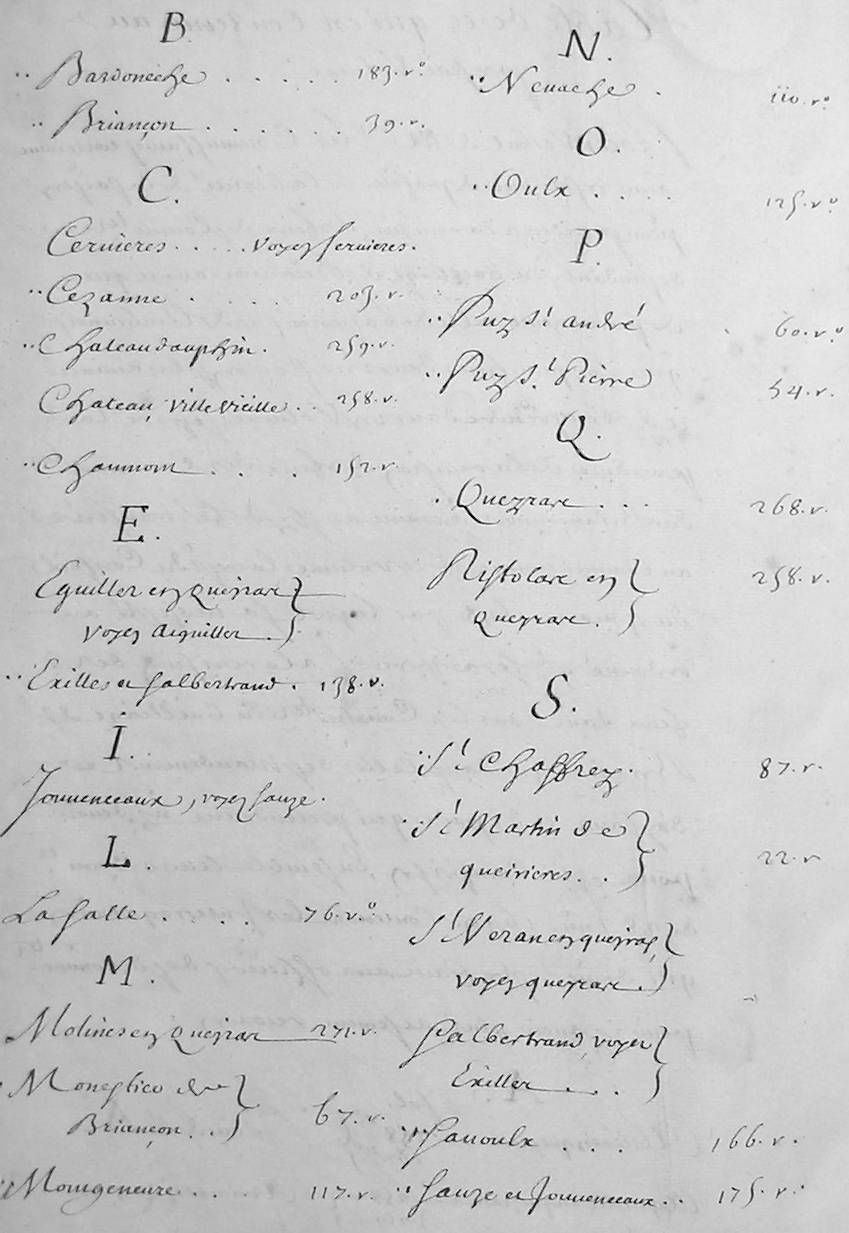 B
Bardoneche . . . . . 183. v.º
Briançon . . . . . . 39. v.
C.
Cervieres. . . . . Voyez Servieres.
Cezanne . . . . 203. v.
Chateaudauphin. 259. v.
Chateau Villevieille . . 258. v.
Chaumont . . . . 152. v.
E.
Eguilles en Queyras
voyez Aiguilles .
Exilles et Salbertrand . 138. v.
I.
Jouvenceaux, voyez Sauze.
L.
La Salle . . . . 76. v.º
M.
Molines en Queyras 271. v.
Monestier de
Briançon . .
67. v.
Mongenevre . . . 117. v.
N.
Nevache . 110. v.º
O.
Oulx . . . . 125. v.º
P.
Puy St. andré 60. v.º
Puy St. Pierre 54. v.
Q.
Queyras . . . 268. v.
Ristolas en 258. v.
Queyras .
S.
St. Chaffrey. 87. v.
St. Martin de
queirieres . .
22. v
St. Veran en queyras,
voyez queyras .
Salbertrand voyez
Exilles . . .
Savoulx . . . 166. v.
Sauze et Jouvenceaux . . 175. v.